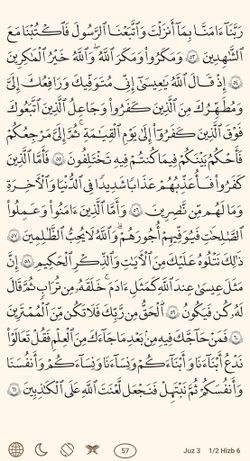 رَبَّنَآ ءَامَنَّا بِمَآ أَنزَلْتَ وَٱتَّبَعْنَا ٱلرَّسُولَ فَٱكْتُبْنَا مَعَ
ٱلشَّٰهِدِينَ ٥٣ وَمَكَرُوا۟ وَمَكَرَ ٱللَّهُ ۖ وَٱللَّهُ خَيْرُ ٱلْمَٰكِرِينَ
٥٤ إِذْ قَالَ ٱللَّهُ يَٰعِيسَىٰٓ إِنِّى مُتَوَفِّيكَ وَرَافِعُكَ إِلَىَّ
وَمُطَهِّرُكَ مِنَ ٱلَّذِينَ كَفَرُوا۟ وَجَاعِلُ ٱلَّذِينَ ٱتَّبَعُوكَ
فَوْقَ ٱلَّذِينَ كَفَرُوٓا۟ إِلَىٰ يَوْمِ ٱلْقِيَٰمَةِ ۖ ثُمَّ إِلَىَّ مَرْجِعُكُمْ
فَأَحْكُمُ بَيْنَكُمْ فِيمَا كُنتُمْ فِيهِ تَخْتَلِفُونَ ٥٥ فَأَمَّا ٱلَّذِينَ
كَفَرُوا۟ فَأُعَذِّبُهُمْ عَذَابًا شَدِيدًا فِى ٱلدُّنْيَا وَٱلْءَاخِرَةِ
وَمَا لَهُم مِّن نَّٰصِرِينَ ٥٦ وَأَمَّا ٱلَّذِينَ ءَامَنُوا۟ وَعَمِلُوا۟
ٱلصَّٰلِحَٰتِ فَيُوَفِّيهِمْ أُجُورَهُمْ ۗ وَٱللَّهُ لَا يُحِبُّ ٱلظَّٰلِمِينَ ٥٧
ذَٰلِكَ نَتْلُوهُ عَلَيْكَ مِنَ ٱلْءَايَٰتِ وَٱلذِّكْرِ ٱلْحَكِيمِ ٥٨ إِنَّ
مَثَلَ عِيسَىٰ عِندَ ٱللَّهِ كَمَثَلِ ءَادَمَ ۖ خَلَقَهُۥ مِن تُرَابٍ ثُمَّ قَالَ
لَهُۥ كُن فَيَكُونُ ٥٩ ٱلْحَقُّ مِن رَّبِّكَ فَلَا تَكُن مِّنَ ٱلْمُمْتَرِينَ
٦٠ فَمَنْ حَآجَّكَ فِيهِ مِنۢ بَعْدِ مَا جَآءَكَ مِنَ ٱلْعِلْمِ فَقُلْ تَعَالَوْا۟
نَدْعُ أَبْنَآءَنَا وَأَبْنَآءَكُمْ وَنِسَآءَنَا وَنِسَآءَكُمْ وَأَنفُسَنَا
وَأَنفُسَكُمْ ثُمَّ نَبْتَهِلْ فَنَجْعَل لَّعْنَتَ ٱللَّهِ عَلَى ٱلْكَٰذِبِينَ ٦١
57 Juz 3 1/2 Hizb 6